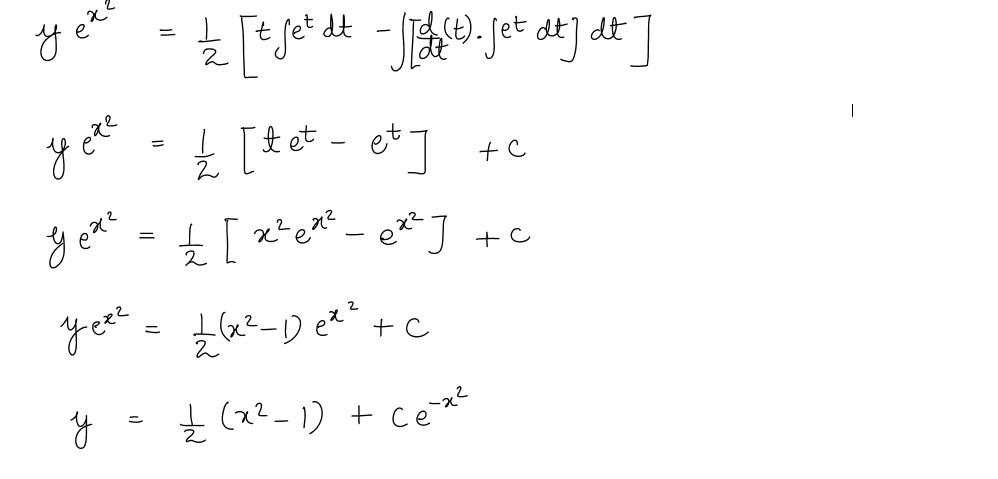 y e^{x^2} = \frac{1}{2} [ t ∫e^t dt - ∫[ \frac{d}{dt} (t) . ∫e^t dt ] dt ]
y e^{x^2} = \frac{1}{2} [ t e^t - e^t ] + c
y e^{x^2} = \frac{1}{2} [ x^2 e^{x^2} - e^{x^2} ] + c
y e^{x^2} = \frac{1}{2} (x^2 - 1) e^{x^2} + c
y = \frac{1}{2} (x^2 - 1) + c e^{-x^2}